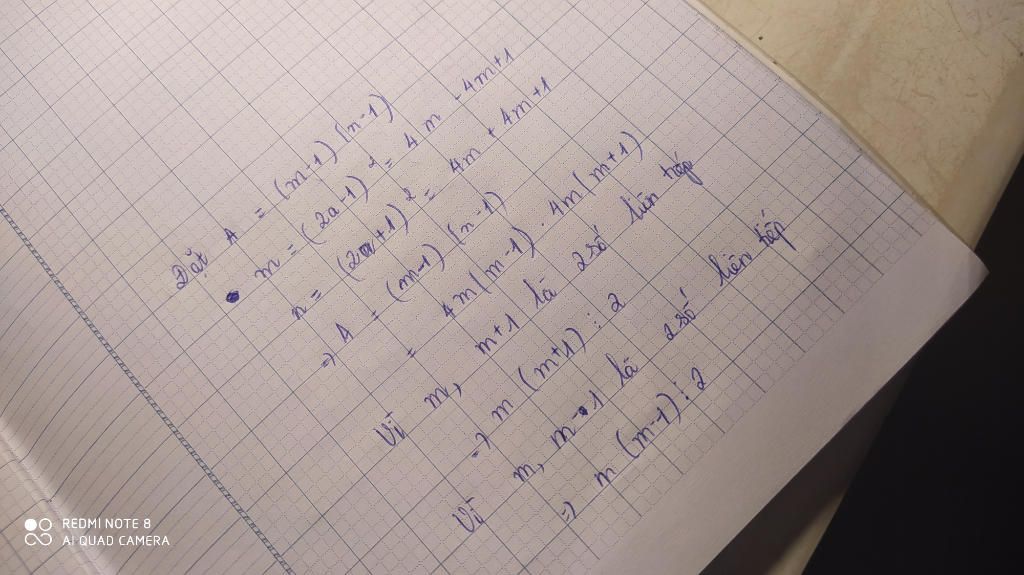 Đặt A = (m-1) (n-1)
m = (2a-1)² = 4m - 4m+1
n = (2m+1)² = 4m + 4m+1
=> A = (m-1) (n-1)
= 4m(m-1) . 4m(m+1)
Vì m, m+1 là 2 số liên tiếp
=> m (m+1) ⋮ 2
Vì m, m-1 là 2 số liên tiếp
=> m (m-1) ⋮ 2
REDMI NOTE 8
AI QUAD CAMERA